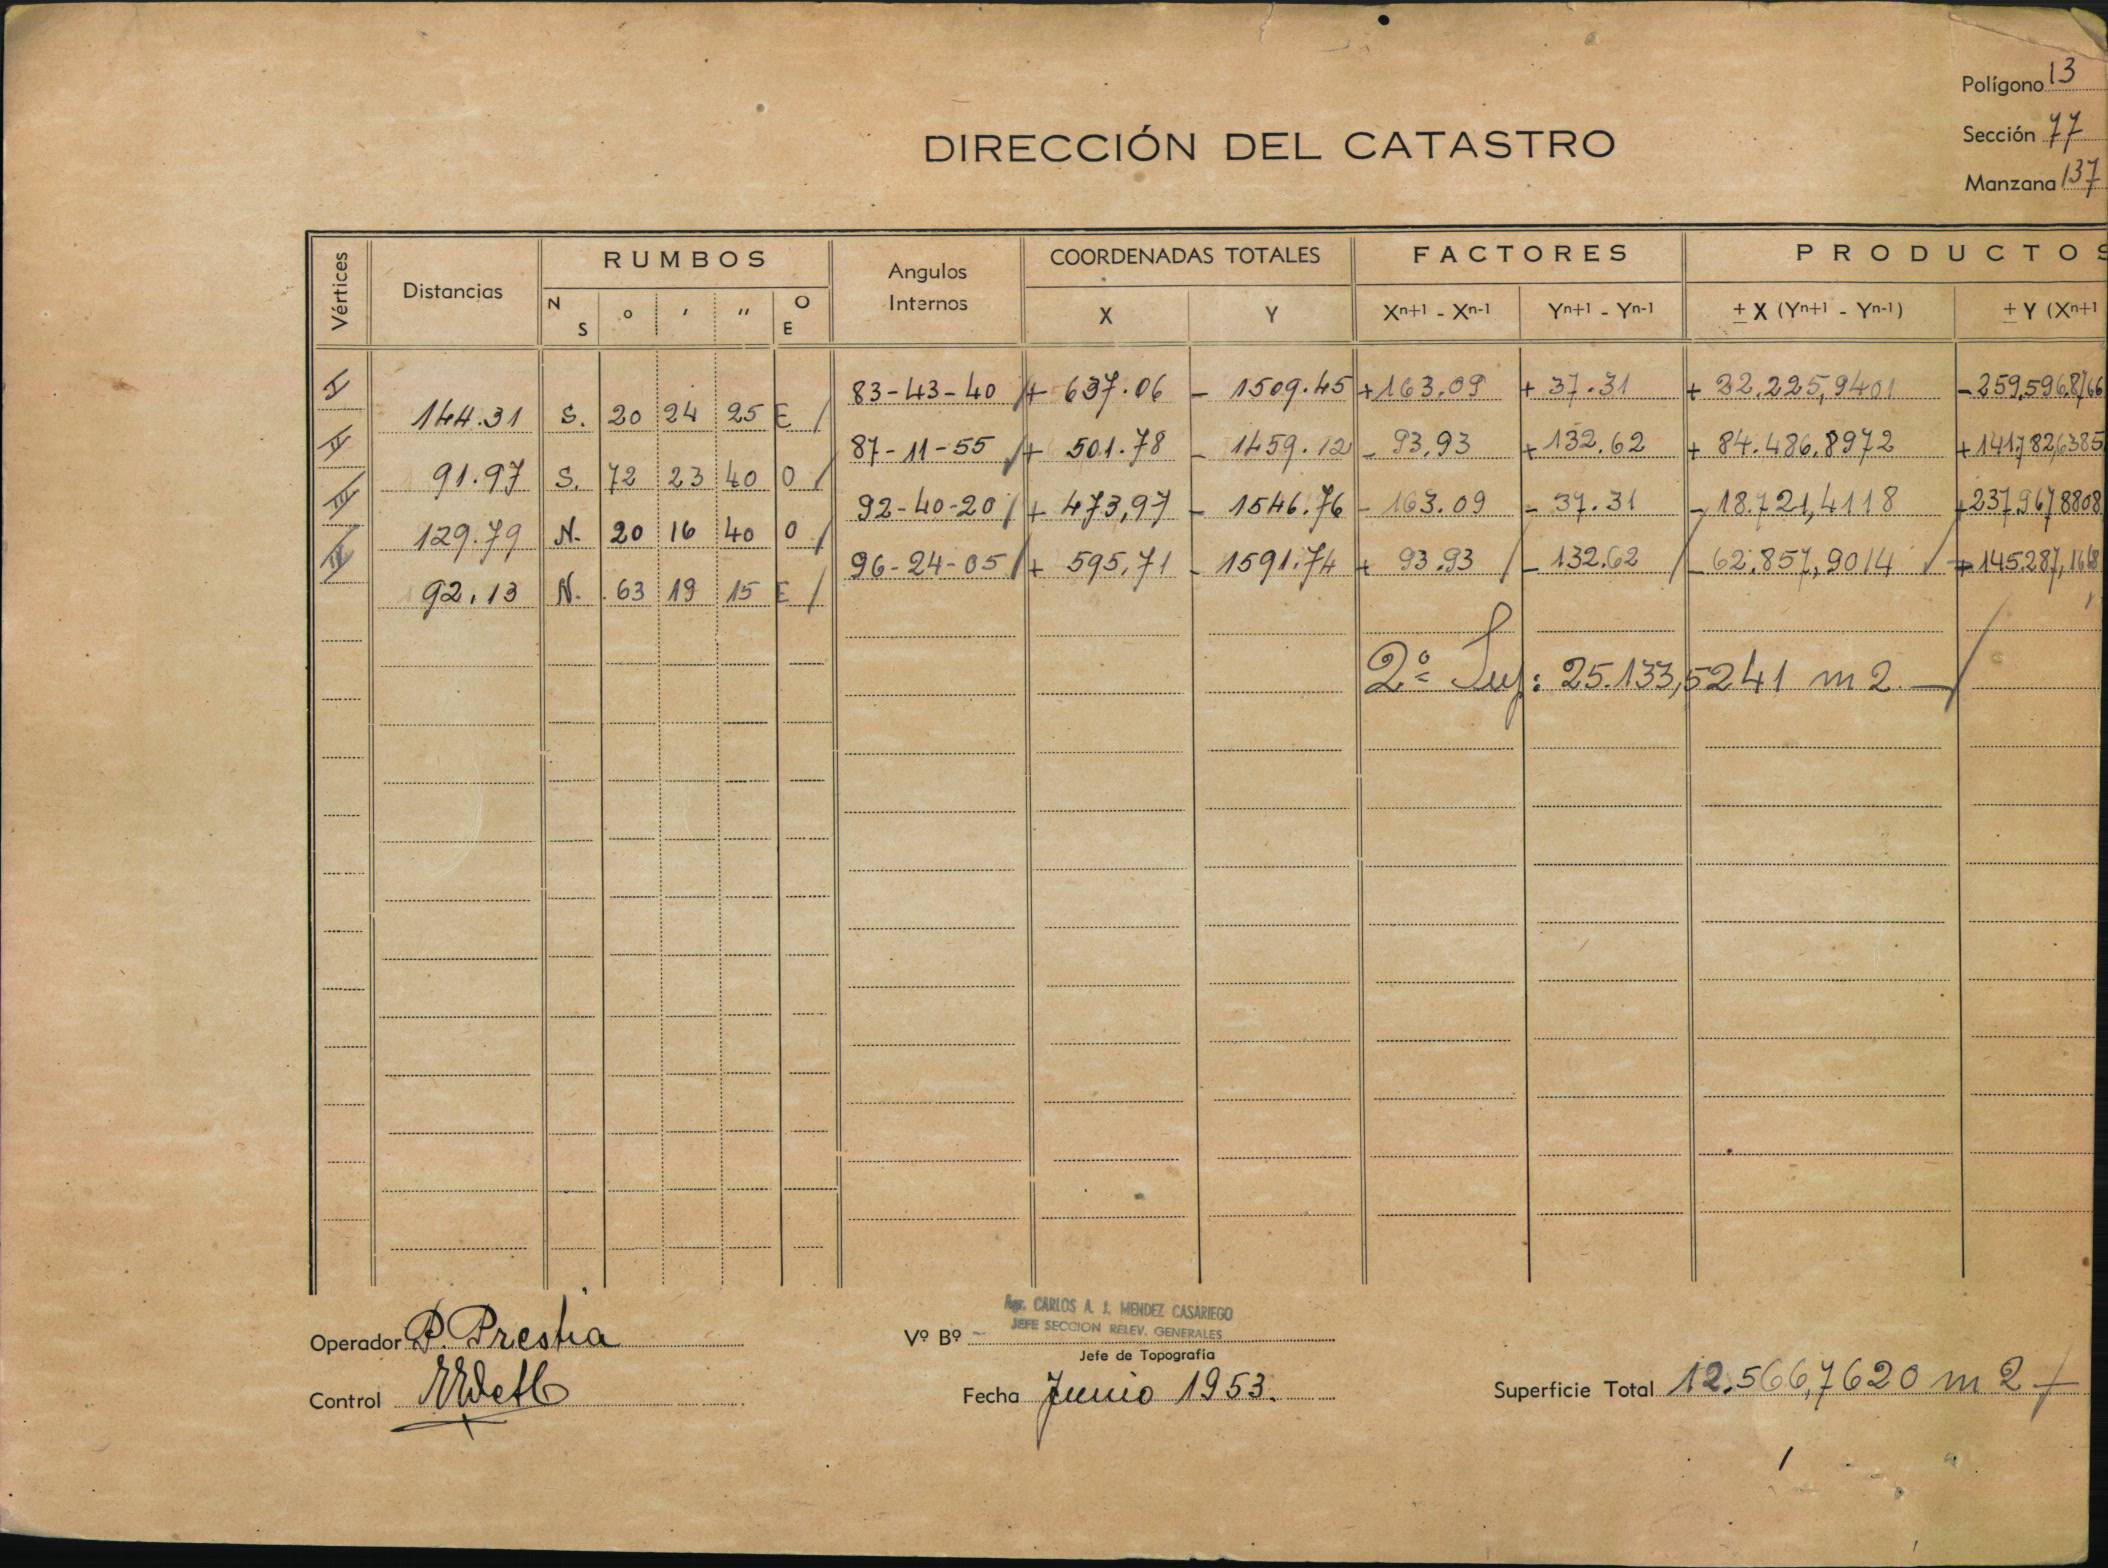 Polígono 13
DIRECCIÓN DEL CATASTRO
Sección 77
Manzana 137
Vértices Distancias RUMBOS Angulos Internos COORDENADAS TOTALES FACTORES PRODUCTOS
N S ° ′ ″ O E X Y Xn+1 - Xn-1 Yn+1 - Yn-1 ± X (Yn+1 - Yn-1) ± Y (Xn+1
I 83-43-40 + 637.06 - 1509.45 + 163.09 + 37.31 + 22.225,9401 - 259.596.8766
144.31 S. 20 24 25 E
II 87-11-55 + 501.78 - 1459.12 - 93.93 + 132.62 + 84.486.8972 + 141.782,6385
91.97 S. 72 23 40 O
III 92-40-20 + 473,97 - 1546.76 - 163.09 - 37.31 - 18.721,4118 + 237.967 8808
129.79 N. 20 16 40 O
IV 96-24-05 + 595.71 - 1591.74 + 93.93 - 132.62 - 62.857,9014 + 145.287,1668
92.13 N. 63 19 15 E
2ª Sup: 25.133,5241 m2
Agr. CARLOS A. J. MENDEZ CASARIEGO
JEFE SECCION RELEV. GENERALES
Operador P. Prestia Vº Bº
Jefe de Topografía
Control Fecha Junio 1953. Superficie Total 12.566,7620 m2